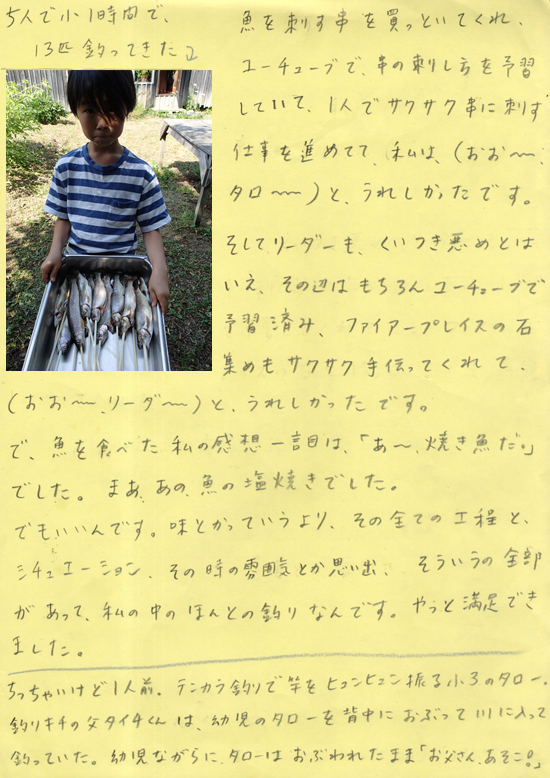 5人で小1時間で、
13匹釣ってきた。
魚を刺す串を買っといてくれ、
ユーチューブで、串の刺し方を予習
していて、1人でサクサク串に刺す
仕事を進めてて、私は、(おお〜、
タロ〜〜)と、うれしかったです。
そしてリーダーも、くいつき悪めとは
いえ、その辺はもちろんユーチューブで
予習済み、ファイアープレイスの石
集めもサクサク手伝ってくれて、
(おお〜、リーダ〜)と、うれしかったです。
で、魚を食べた私の感想一言目は、「あ〜、焼き魚だ。」
でした。まあ、あの、魚の塩焼きでした。
でもいいんです。味とかっていうより、その全ての工程と、
シチュエーション、その時の雰囲気とか思い出、そういうの全部
があって、私の中のほんとの釣りなんです。やっと満足でき
ました。
ちっちゃいけど1人前。テンカラ釣りで竿をヒュンヒュン振る小3のタロー。
釣りキチの父タイチくんは、幼児のタローを背中におぶって川に入って
釣っていた。幼児ながらに、タローはおぶわれたまま「お父さん、あそこ!」